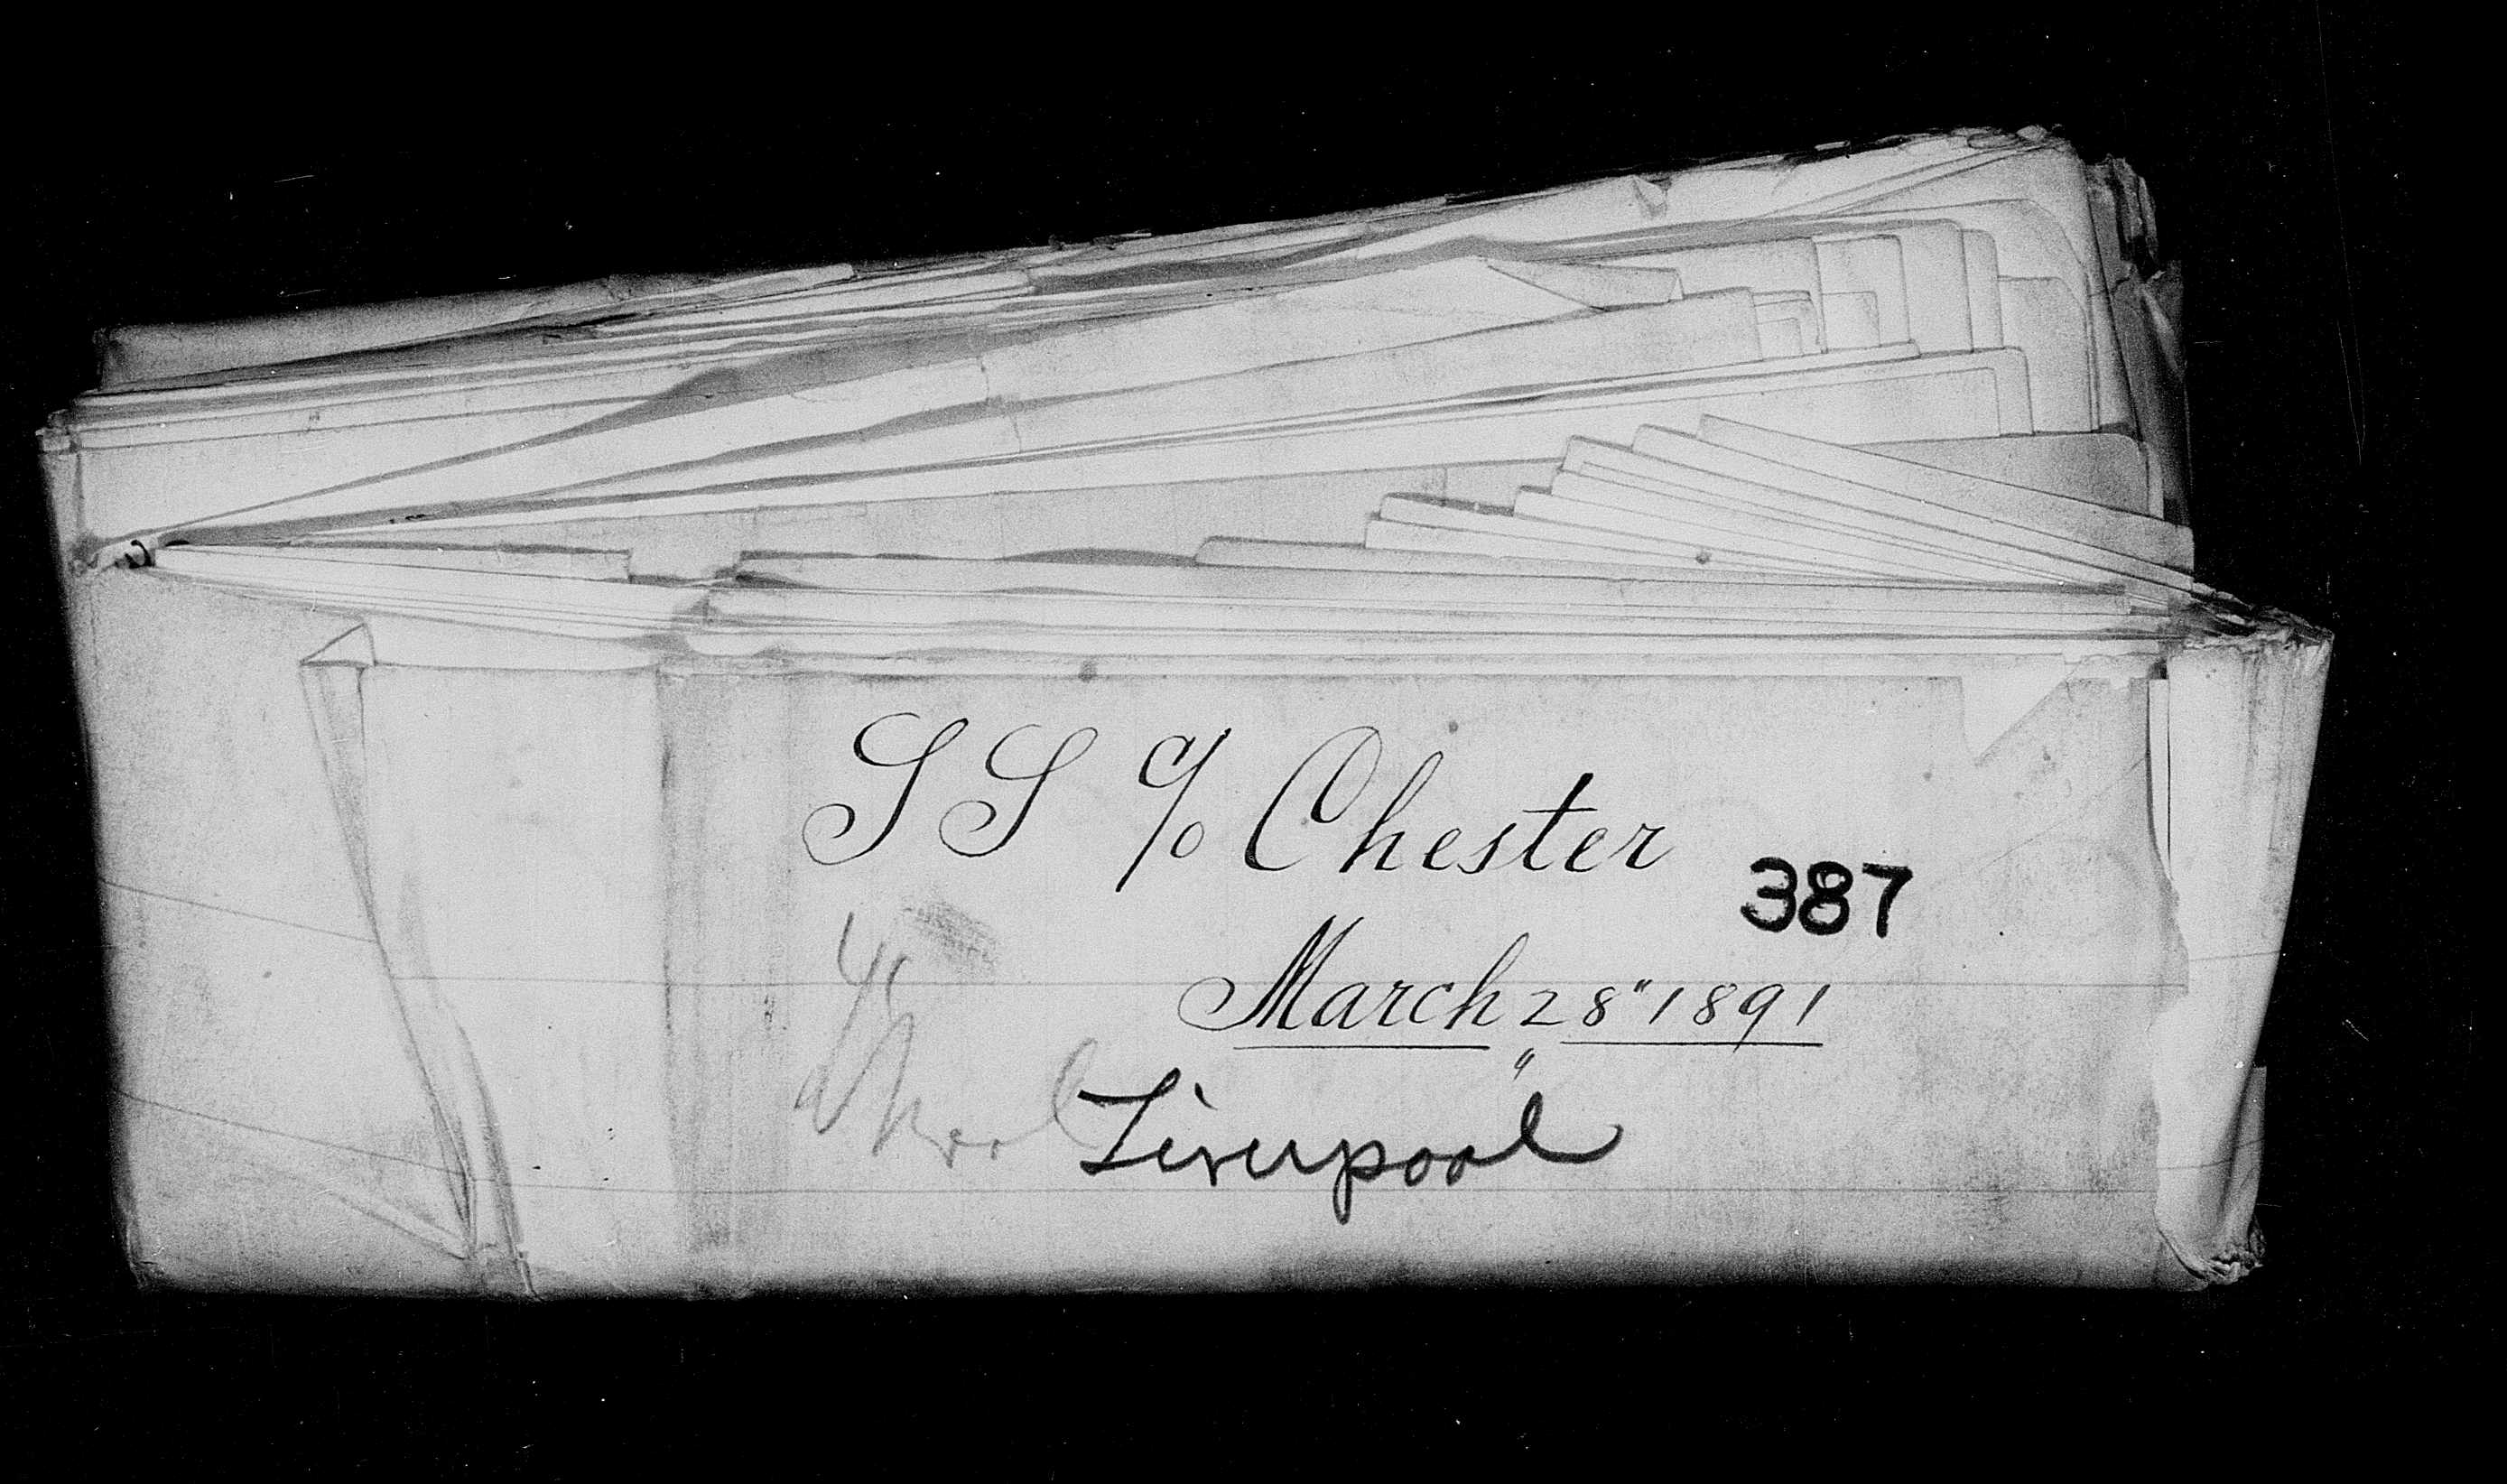 SS c/o Chester
387
March 28" 1891
"
Liverpool